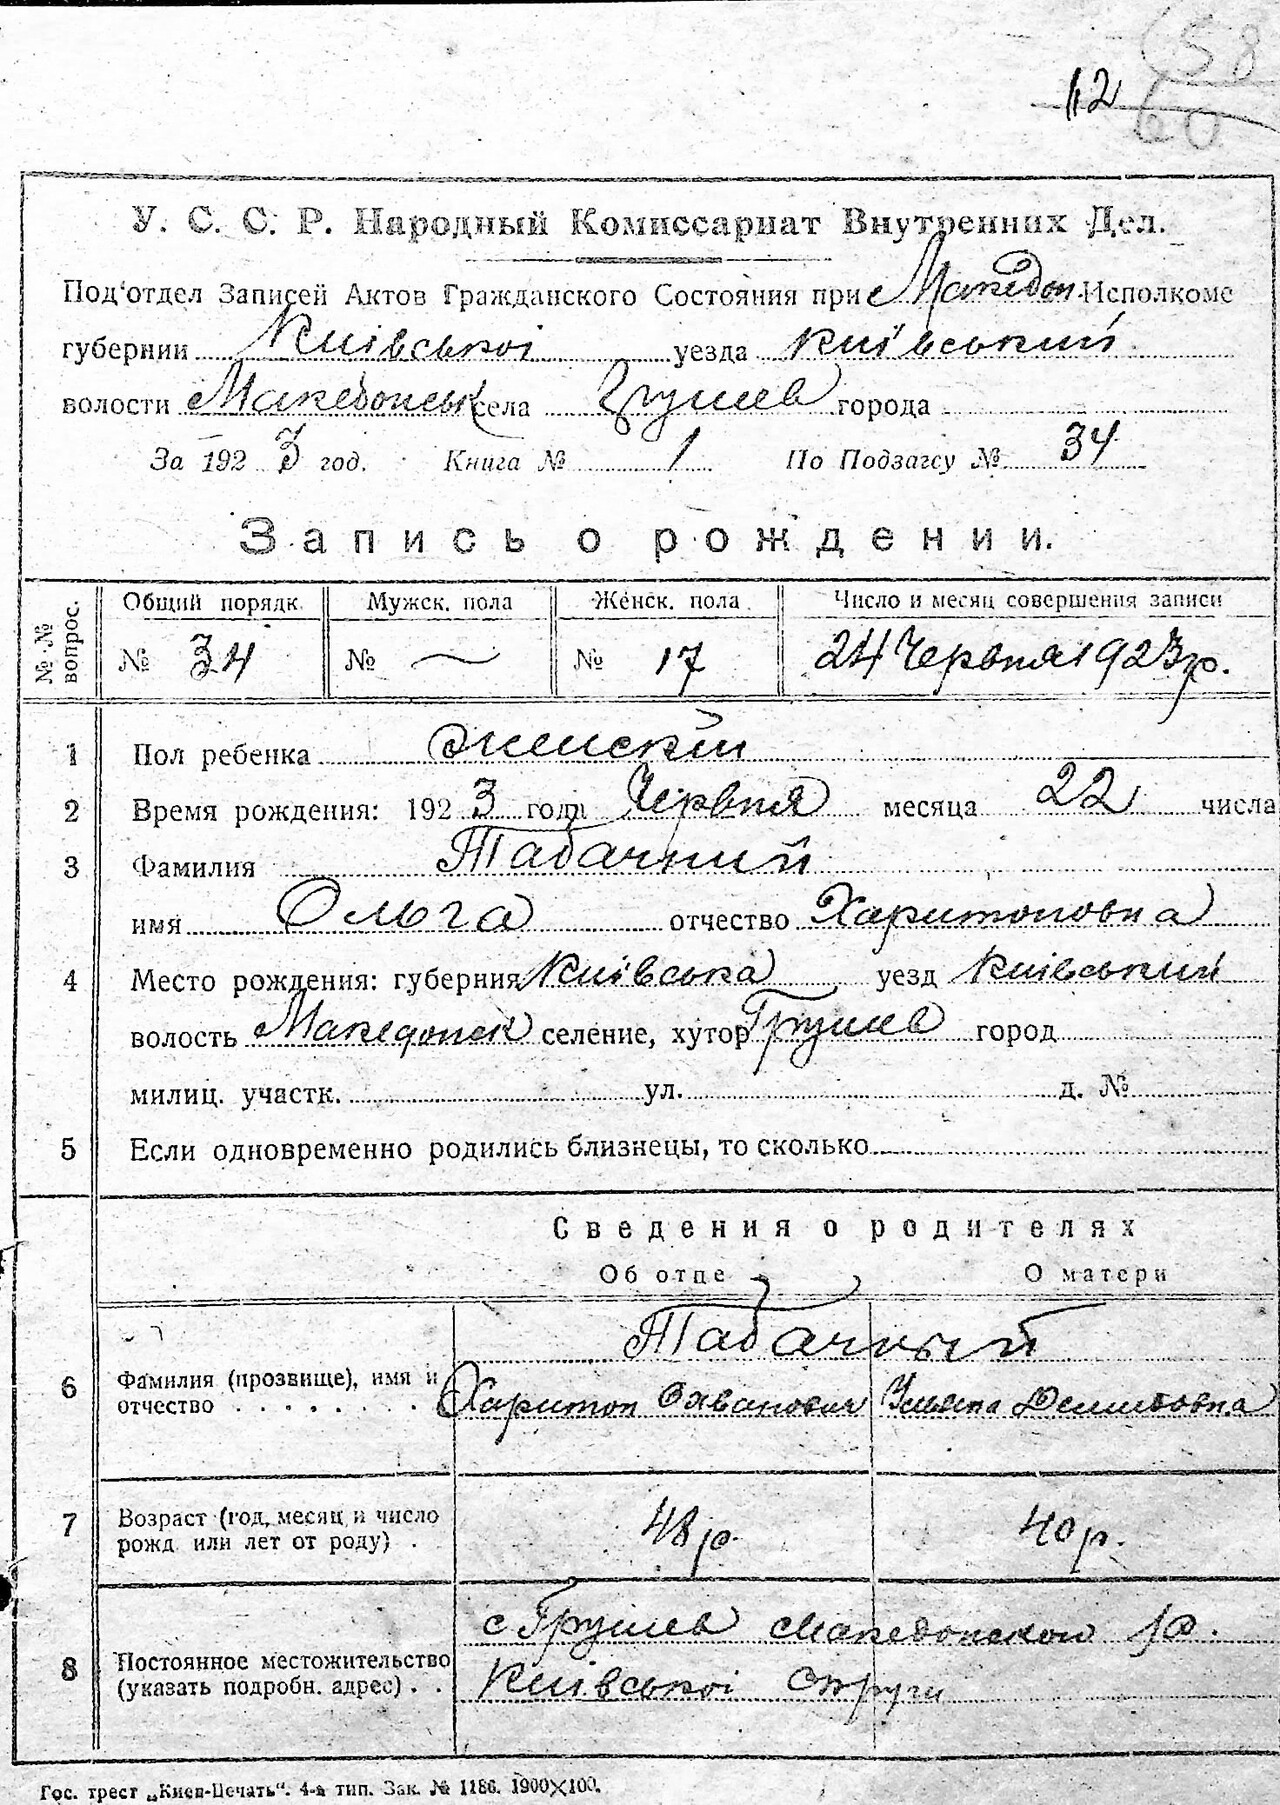 58
112 60
У. С. С. Р. Народный Комиссариат Внутренних Дел.
Под'отдел Записей Актов Гражданского Состояния при Македон. Исполкоме
губернии Київської уезда київський
волости Македонськ села Грушев города
За 1923 год. Книга № 1 По Подзагсу № 34
Запись о рождении.
№№ вопрос. Общий порядк. Мужск. пола Женск. пола Число и месяц совершения записи
№ 34 № — № 17 24 Червня 1923 р.
1 Пол ребенка женскій
2 Время рождения: 1923 года Червня месяца 22 числа
3 Фамилия Табачний
имя Ольга отчество Харитоновна
4 Место рождения: губерния Київська уезд Київський
волость Македонск селение, хутор Грушев город
милиц. участк. ул. д. №
5 Если одновременно родились близнецы, то сколько
Сведения о родителях
Об отце О матери
Табачный
6 Фамилия (прозвище), имя и
отчество Харитон Ульяна Демидовна
7 Возраст (год, месяц и число
рожд. или лет от роду) 48 р. 40 р.
с Грушев Македонской р.
8 Постоянное местожительство
(указать подробн. адрес) Київської Округи
Гос. трест „Киев-Печать". 4-я тип. Зак. № 1186. 1900×100.